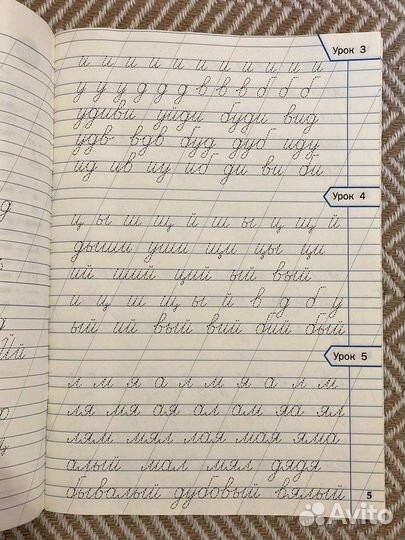 Урок 3
и и и и и и и и и и и
у у у д д д в в в б б б
удиви уйди буди вид
удв вдв буд дуб иду
ид ив иу иб ди ви бй
Урок 4
ц ы ш щ й ш ы ц щ й
дыши уший щи цы ци
ий ший щий ый вый
и ц ш щ ы й в д б у
ый ий вый вий бий бый
Урок 5
л м я а л м я а л м
ля мя ая ал ам яа ял
лям мял лая мая яма
алый мал мял дядя
бывалый дубовый вялый
5
Avito